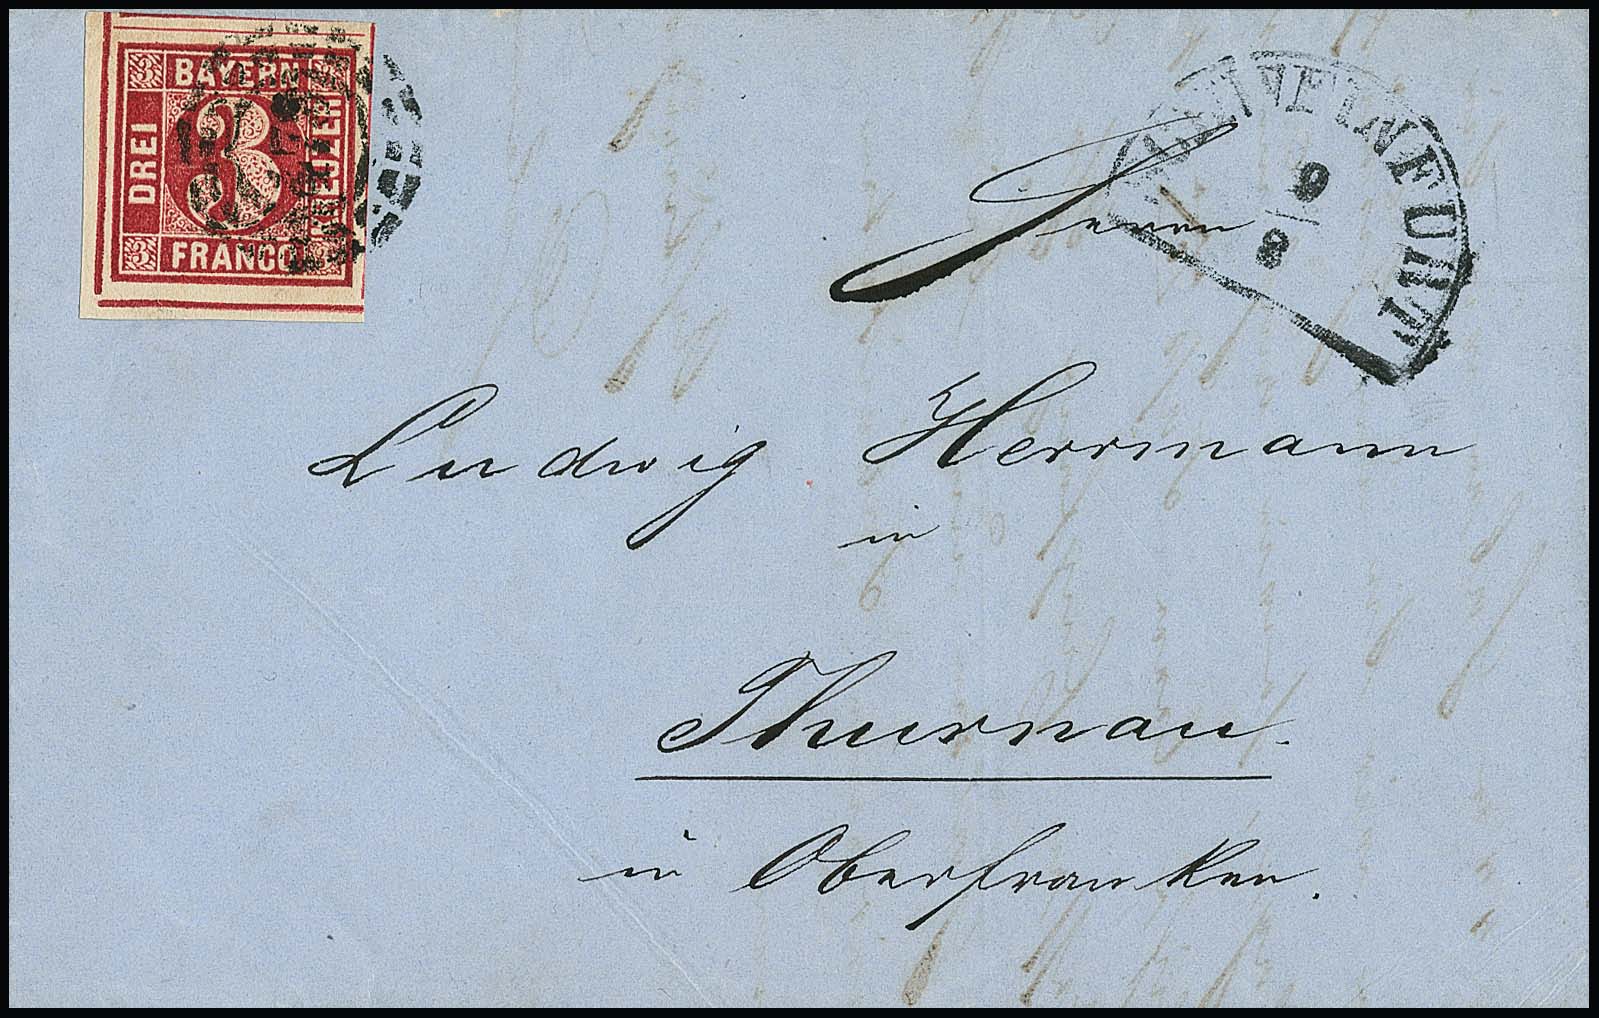 3 BAYERN
DREI
3
KREUZER
3 FRANCO
SCHWEINFURT
9
8
Herrn
Ludwig Herrmann
in
Thurnau.
in Oberfranken.